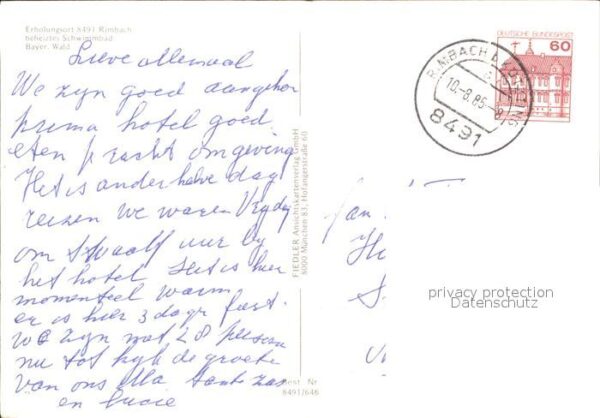 Erholungsort 8491 Rimbach
beheiztes Schwimmbad
Bayer. Wald
Lieve allemaal
We zijn goed aangekomen
prima hotel goed
eten pracht omgeving
Het is anderhalve dag
reizen we waren Vrijdag
om twaalf uur bij
het hotel Het is hier
momenteel warm
er is hier 3 dage feest.
we zijn met 28 personen
nu tot kijk de groeten
van ons alla tante
en
FIEDLER Ansichtskartenverlag GmbH
8000 München 83, Hofangerstraße 60
Best. Nr.
8491/646
DEUTSCHE BUNDESPOST
60
RIMBACH
10.-8.85.-8
8491
privacy protection
Datenschutz